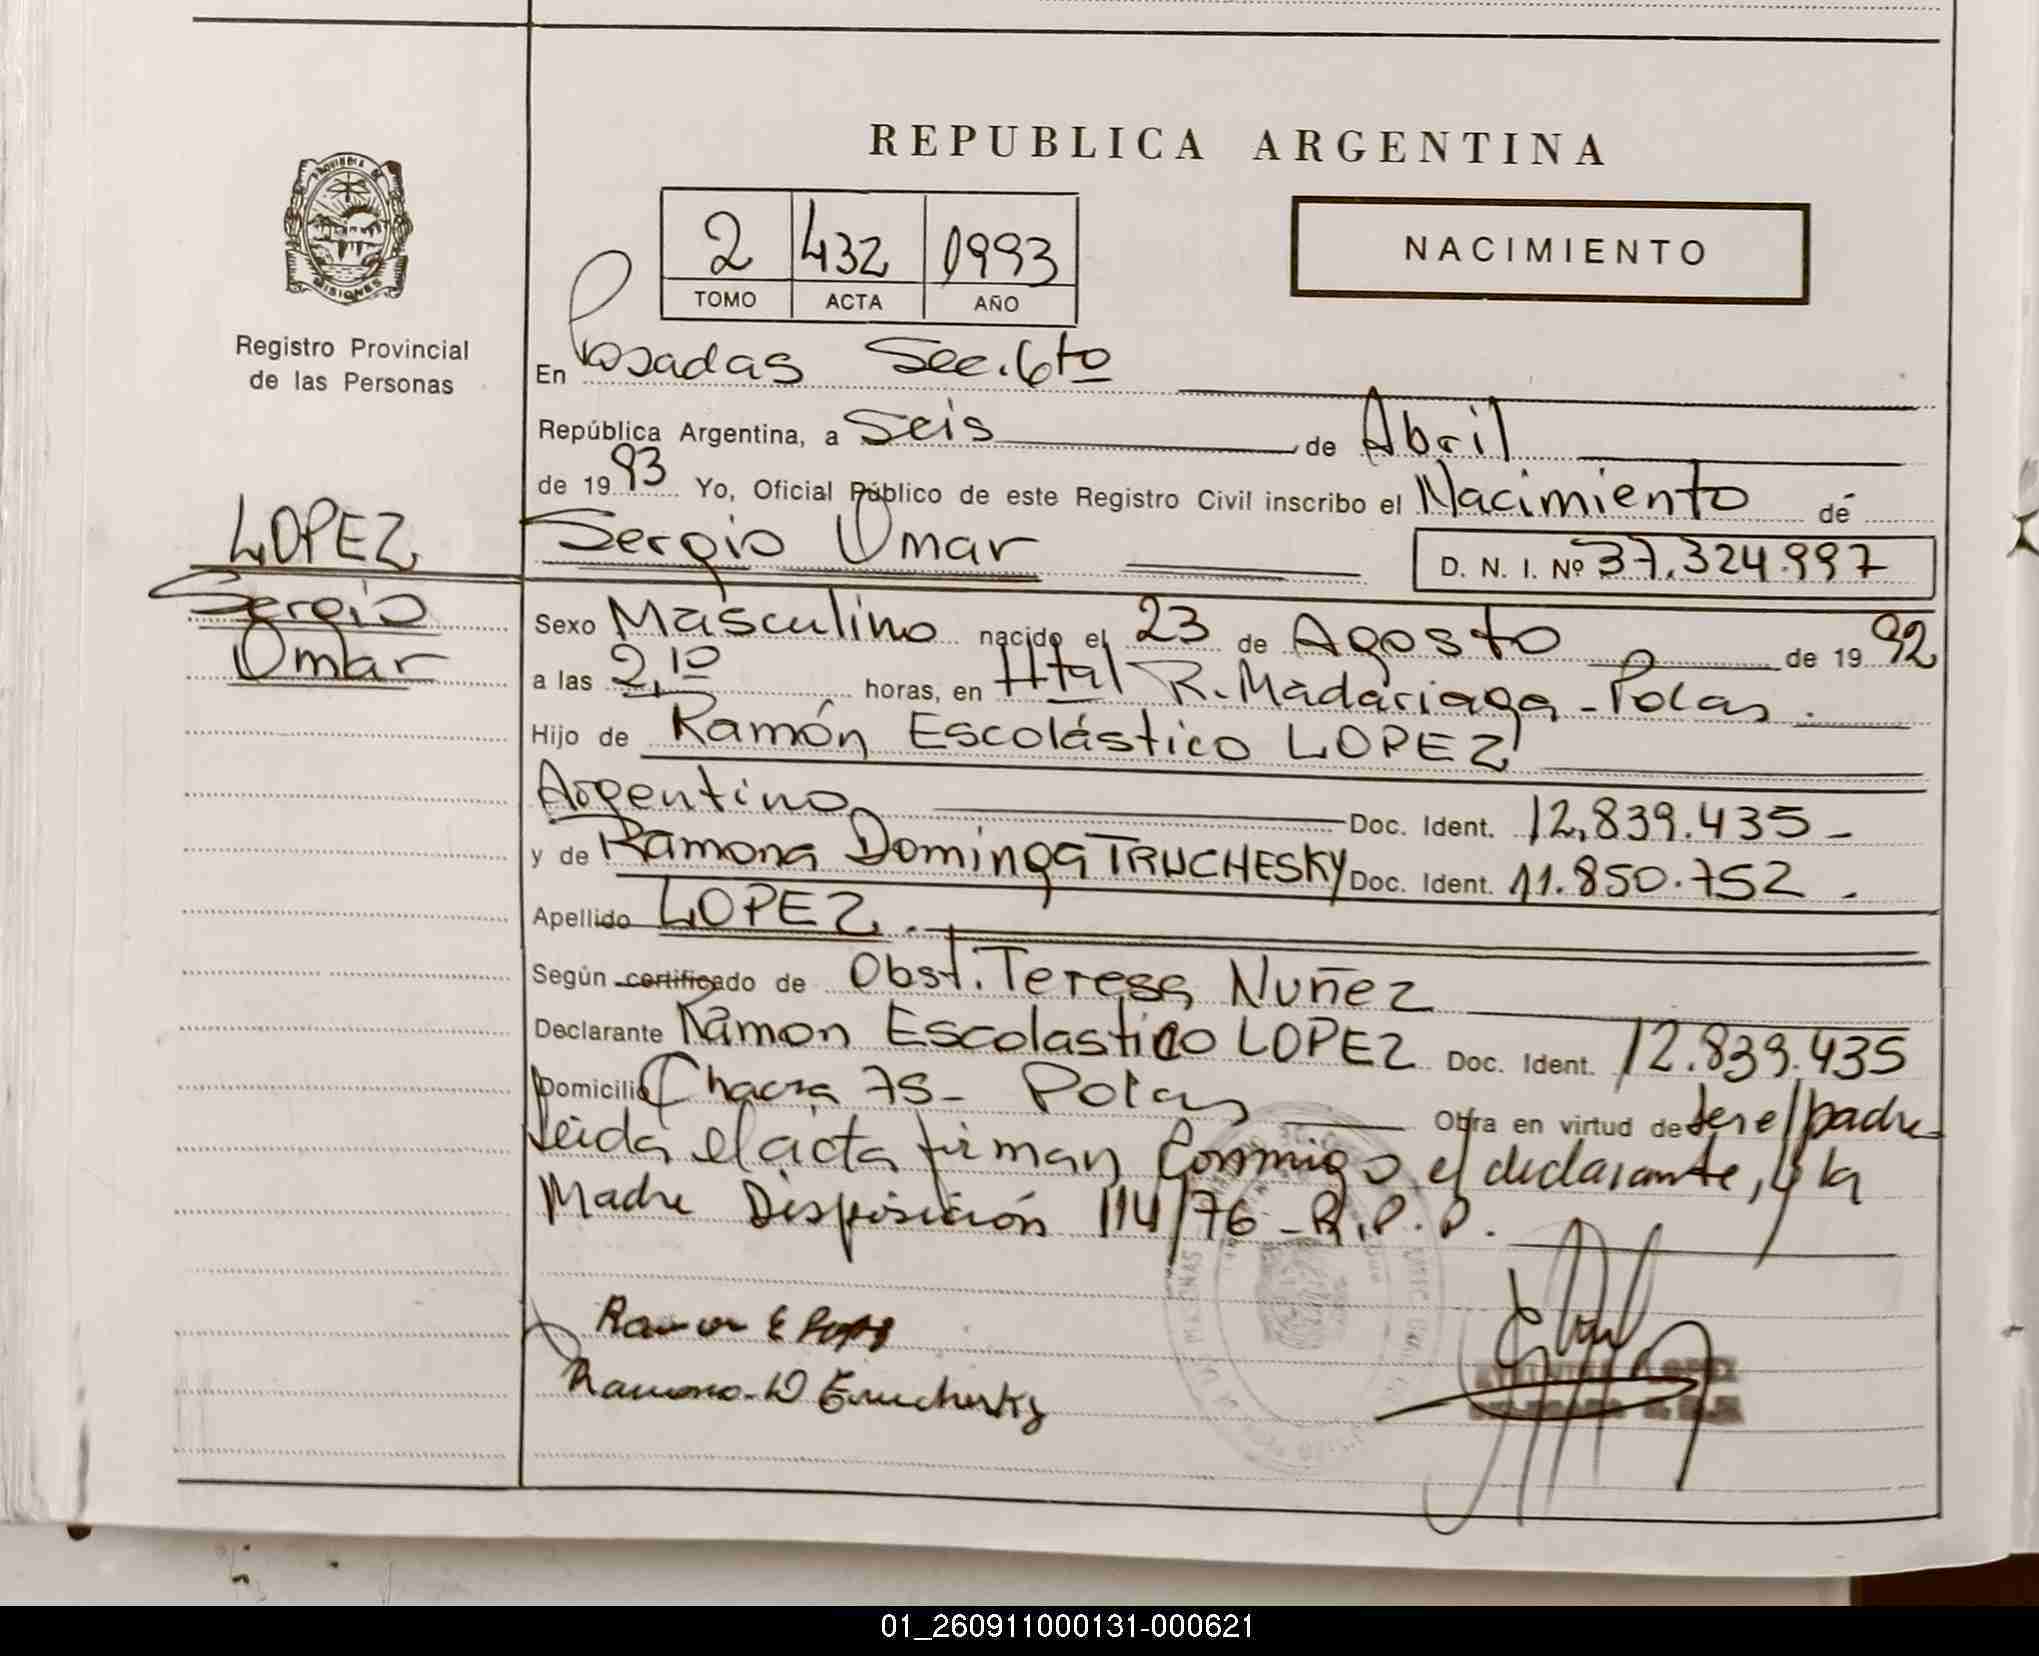 REPUBLICA ARGENTINA
2 432 1993
TOMO ACTA AÑO
NACIMIENTO
PROVINCIA DE
MISIONES
Registro Provincial
de las Personas
LOPEZ
Sergio
Omar
En Posadas Sec. 6to
República Argentina, a Seis de Abril
de 1993 Yo, Oficial Público de este Registro Civil inscribo el Nacimiento de
Sergio Omar D. N. I. Nº 37.324.997
Sexo Masculino nacido el 23 de Agosto de 1992
a las 2,10 horas, en Htal R. Madariaga - Pdas.
Hijo de Ramón Escolástico LOPEZ
Argentino Doc. Ident. 12.839.435 -
y de Ramona Dominga TRUCHESKY Doc. Ident. 11.850.752 -
Apellido LOPEZ.
Según certificado de Obst. Teresa Nuñez
Declarante Ramon Escolastico LOPEZ Doc. Ident. 12.839.435
Domicilio Chacra 75 - Pdas Obra en virtud de ser el padre
leida el acta firman Conmigo el declarante, y la
Madre Disposición 114/76 - R.P.P.
Ramon E Lopez
Ramona D Truchesky
01_260911000131-000621